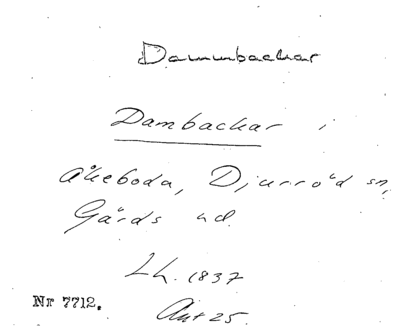 Dammbackar
Dambackar i
Åkeboda, Djurröd sn,
Gärds hd.
Lh. 1837
Nr 7712.
Akt 25.